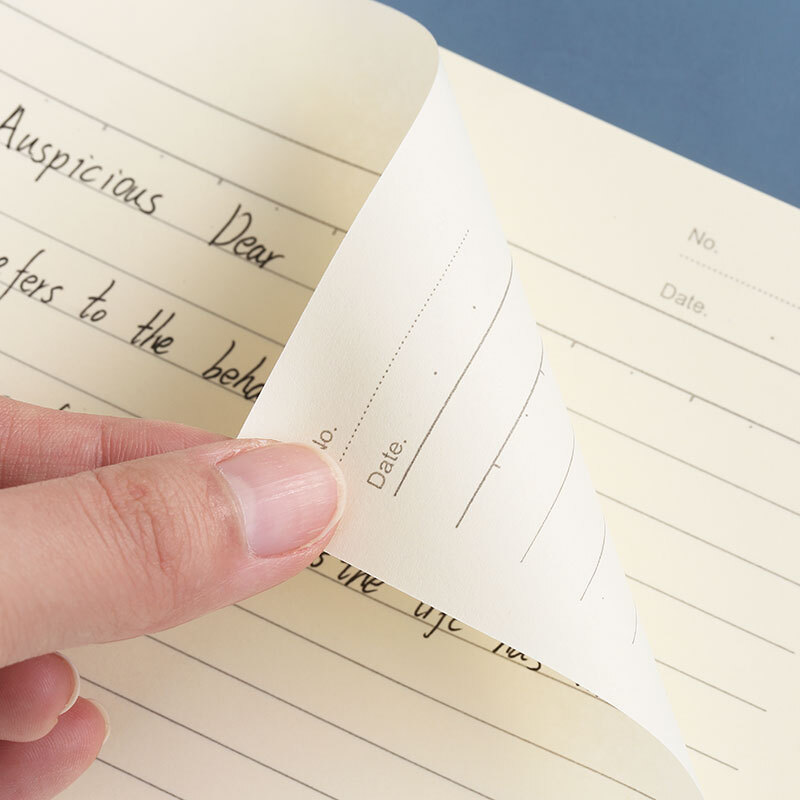 Auspicious Dear
efers to the beha
s the life has
No.
Date.
No.
Date.